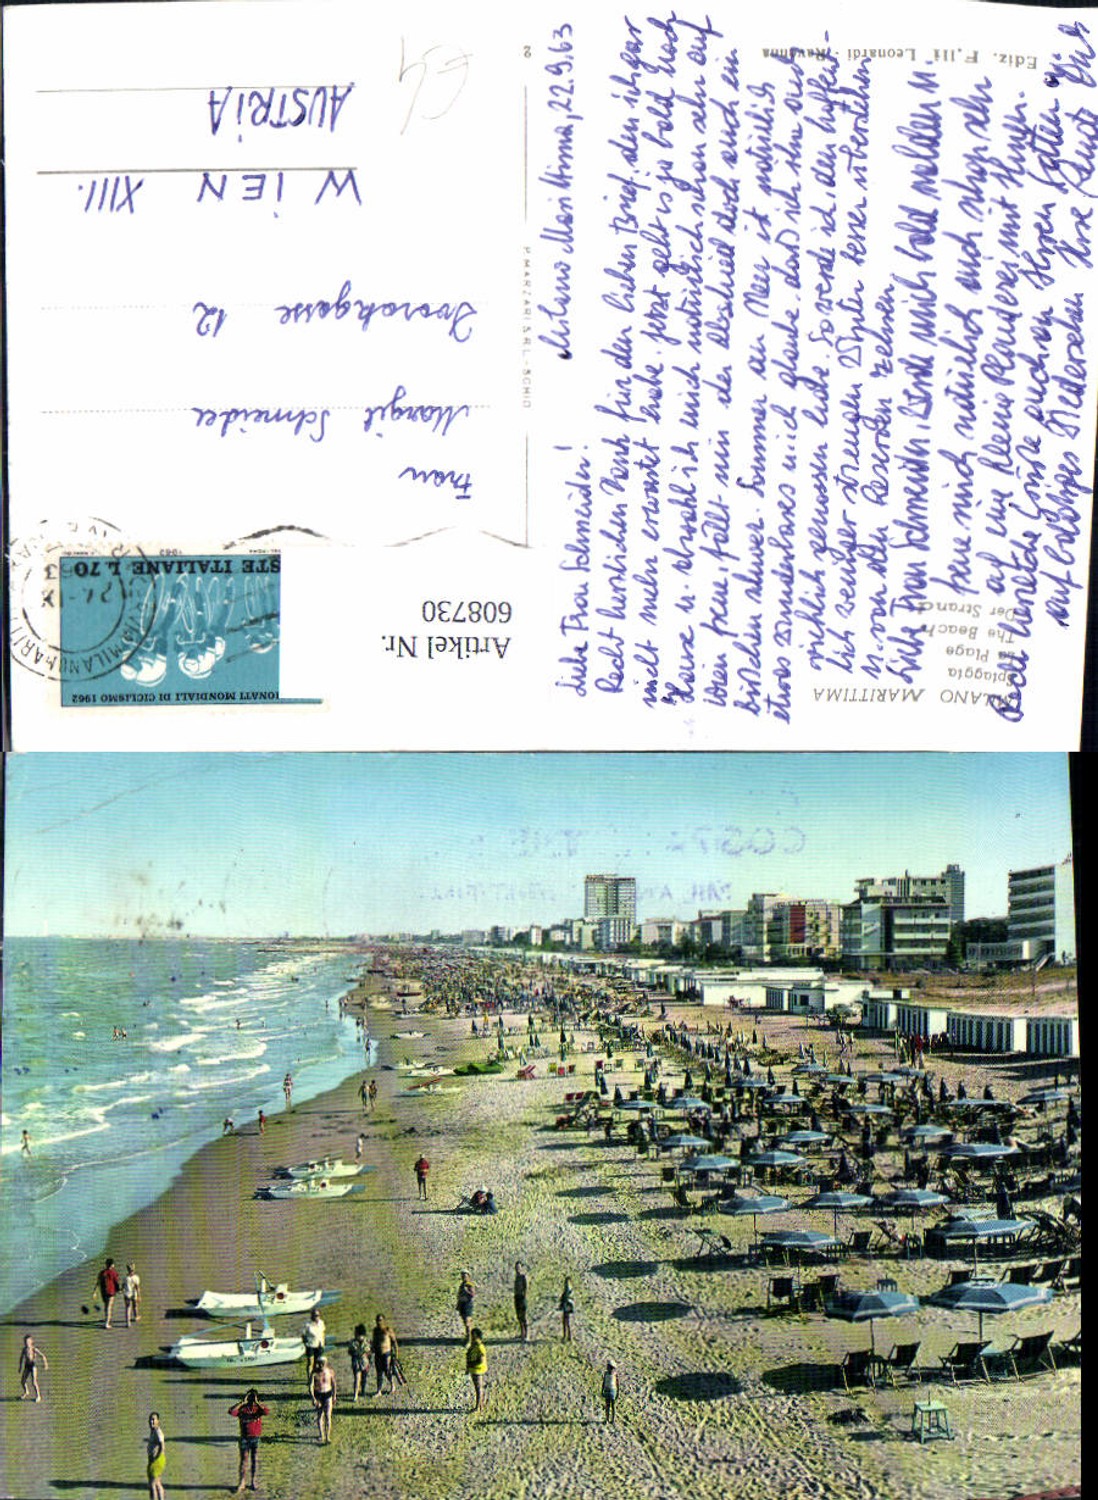 MILANO MARITTIMA
Spiaggia
La Plage
The Beach
Der Strand
Ediz. F.lli Leonardi - Ravenna
2
P. MARZARI S.R.L. - SCHIO
Milano Marittima, 22.9.63
Liebe Frau Schneider!
Recht herzlichen Dank für den lieben Brief, den ich gar
nicht mehr erwartet habe. Jetzt geht es ja bald nach
Hause u. obwohl ich mich natürlich schon sehr auf
Wien freue, fällt mir der Abschied doch auch ein
bißchen schwer. Sommer am Meer ist natürlich
etwas wunderbares u. ich glaube, daß ich ihn auch
reichlich genossen habe. So werde ich den hoffent-
lich weniger strengen Winter besser überstehen
u. von den Reserven zehren.
Liebe Frau Schneider, werde mich bald melden u.
freue mich natürlich auch schon sehr
auf ein kleine Plauderei mit Ihnen.
Recht herzliche Grüße auch an Ihren Gatten u.
auf baldiges Wiedersehen Ihre
Frau
Margit Schneider
12
WIEN XIII.
AUSTRIA
STE ITALIANE L.70
IONATI MONDIALI DI CICLISMO 1962
1962
Artikel Nr.
608730